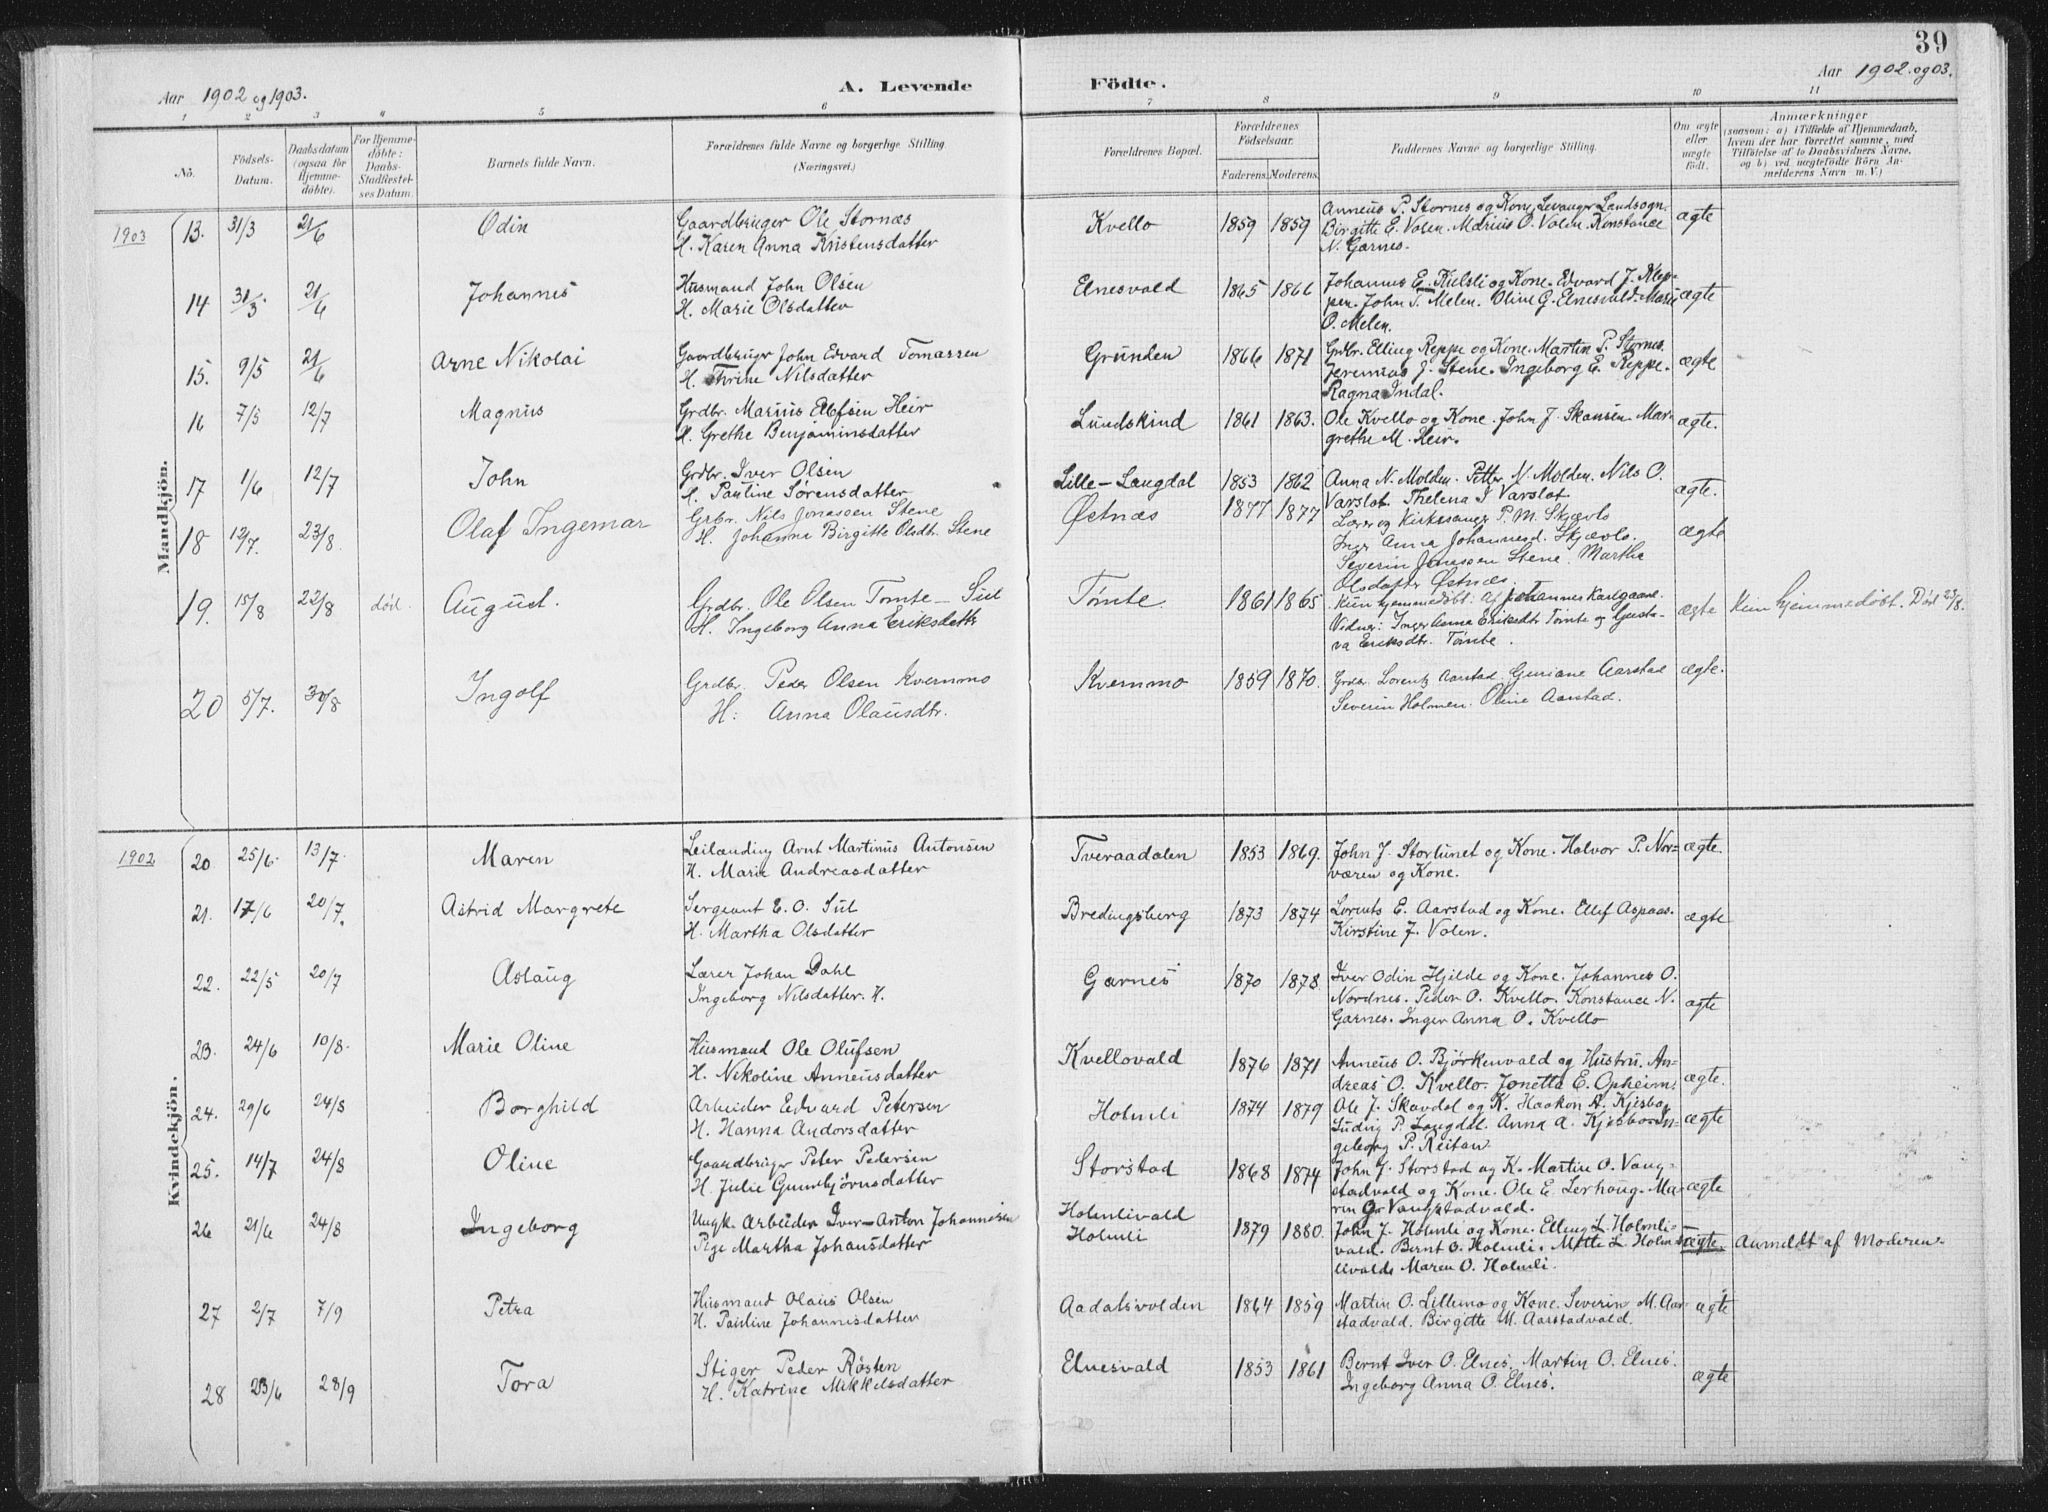 39
Aar 1902 og 1903.
A. Levende Födte.
Aar 1902. og 03.
1 2 3 4 5 6 7 8 9 10 11
No.
Födsels-Datum.
Daabsdatum (ogsaa for Hjemme-döbte).
For Hjemme-döbte: Daabs-Stadfæstel-ses Datum.
Barnets fulde Navn.
Forældrenes fulde Navne og borgerlige Stilling (Næringsvei.)
Forældrenes Bopæl.
Forældrenes Födselsaar.
Faderens. Moderens.
Faddernes Navne og borgerlige Stilling.
Om ægte eller uægte födt.
Anmærkninger
(saasom: a) i Tilfælde af Hjemmedaab, hvem der har forrettet samme, med Tilföielse af to Daabsvidners Navne, og b) ved uægtefödte Börn Anmelderens Navn m. V.)
Mandkjön.
1903 13. 31/3 21/6 Odin
Gaardbruger Ole Stornæs
H. Karen Anna Kristensdatter
Kvello 1859 1859
Anneus P. Stornes og Kone, Levanger Landsogn.
Birgitte E. Volen. Marius O. Volen. Konstance
N. Garnes.
ægte
14 31/3 21/6 Johannes
Husmand John Olsen
H. Marie Olsdatter
Elnesvald 1865 1866
Johannes E. Kulsli og Kone. Edvard J. Klep-
pen. John T. Melen. Oline G. Elnesvald. Marie
O. Melen.
ægte
15. 9/5 21/6 Arne Nikolai
Gaardbruger John Edvard Tomassen
H. Thrine Nilsdatter
Grunden 1866 1871
Grdbr. Elling Reppe og Kone. Martin P. Stornes.
Jeremias J. Stene. Ingeborg E. Reppe.
Ragna Indal.
ægte
16 7/5 12/7 Magnus
Grdbr. Marius Ellefsen Heir
H. Grethe Benjaminsdatter
Lundskind 1861 1863.
Ole Kvello og Kone. John J. Skansen. Mar-
grethe M. Heir.
ægte.
17 1/6 12/7 John
Grdbr. Iver Olsen
H. Pauline Sørensdatter
Lille-Langdal 1853 1862
Anna N. Molden. Petter N. Molden. Nils O.
Varslot. Thelena J Varslot.
ægte.
18 12/7. 23/8. Olaf Ingemar
Grbr. Nils Jonassen Stene
H. Johanna Birgitte Olsdtr. Stene
Østnæs 1877 1877
Lærer og Kirkesanger P. M. Skjævlo
Inger Anna Johannesd. Skjævlo.
Severin Jonassen Stene. Martha
Olsdatter Østnæs.
ægte
19. 15/8 22/8 död. August.
Grdbr. Ole Olsen Tomte - Sul
H. Ingeborg Anna Eriksdattr
Tömte 1861 1865
Kun hjemmedöbt: Af Johannes Karlgaard.
Vidner: Inger Anna Eriksdtr Tömte og Gusta-
va Eriksdtr. Tömte.
ægte Kun hjemmedöbt. Död 23/8.
20 5/7. 30/8 Ingolf
Grdbr. Peder Olsen Kvernmo
H: Anna Olausdtr.
Kvernmo 1859 1870.
Grdbr. Lorents Aarstad. Guriane Aarstad
Severin Holmen. Oline Aarstad.
ægte.
Kvindekjön.
1902 20 25/6. 13/7. Maren
Leilænding Arnt Martinus Antonsen
H. Marie Andreasdatter
Tveraadalen 1853 1869.
John J. Storlunet og Kone. Halvor P. Nor-
væren og Kone.
ægte.
21. 17/6 20/7. Astrid Margrete
Sergeant E. O. Sul
H. Martha Olsdatter
Bredingsberg 1873 1874
Lorents E. Aarstad og Kone. Ellef Aspaas.
Kirstine J. Volen.
ægte
22. 22/5 20/7 Aslaug
Lærer Johan Dahl
Ingeborg Nilsdatter. H.
Garnes 1870 1878.
Iver Odin Hjelde og Kone. Johannes O.
Nordnes. Peder O. Kvello. Konstance N.
Garnes. Inger Anna O. Kvello
ægte
23. 24/6 10/8. Marie Oline
Husmand Ole Olufsen
H. Nikoline Anneusdatter
Kvellovald 1876 1871
Anneus O. Bjørkenvald og Hustru. An-
dreas O. Kvello. Jonetta E. Opheim.
ægte.
24. 29/6 24/8 Borghild
Arbeider Edvard Petersen
H. Hanna Andorsdatter
Holmli 1874 1879
Ole J. Skavdal og K. Haakon A. Kjesbo,
Ludvig P. Langdal. Anna A. Kjesbo. In-
geborg P. Reitan
ægte
25. 14/7 24/8 Oline
Gaardbruger Peter Pedersen
H. Julie Gunbjørnsdatter
Storstad 1868 1874
John J. Storstad og K. Martin O. Vang-
stadvald og Kone. Ole E. Lerhaug. Ma-
ren O. Vangstadvald.
ægte
26 21/6 24/8 Ingeborg
Ungk. Arbeider Iver Anton Johannesen
Pige Martha Johansdatter
Holmlivald
Holmli
1879 1880.
John J. Holmli og Kone. Elling L. Holmli-
vald. Bernt O. Holmli. Mette L. Holm-
livald. Maren O. Holmli.
uægte. Anmeldt af Moderen.
27 2/7 7/9 Petra
Husmand Olaus Olsen
H. Pauline Johannesdatter
Aadalsvolden 1864 1859
Martin O. Lillemo og Kone. Severin M. Aar-
stadvald. Birgitte M. Aarstadvald.
ægte
28 23/6 28/9 Tora
Stiger Peder Røsten
H. Katrine Mikkelsdatter
Elnesvald 1853 1861
Bernt Iver O. Elnes. Martin O. Elnes.
Ingeborg Anna O. Elnes.
ægte